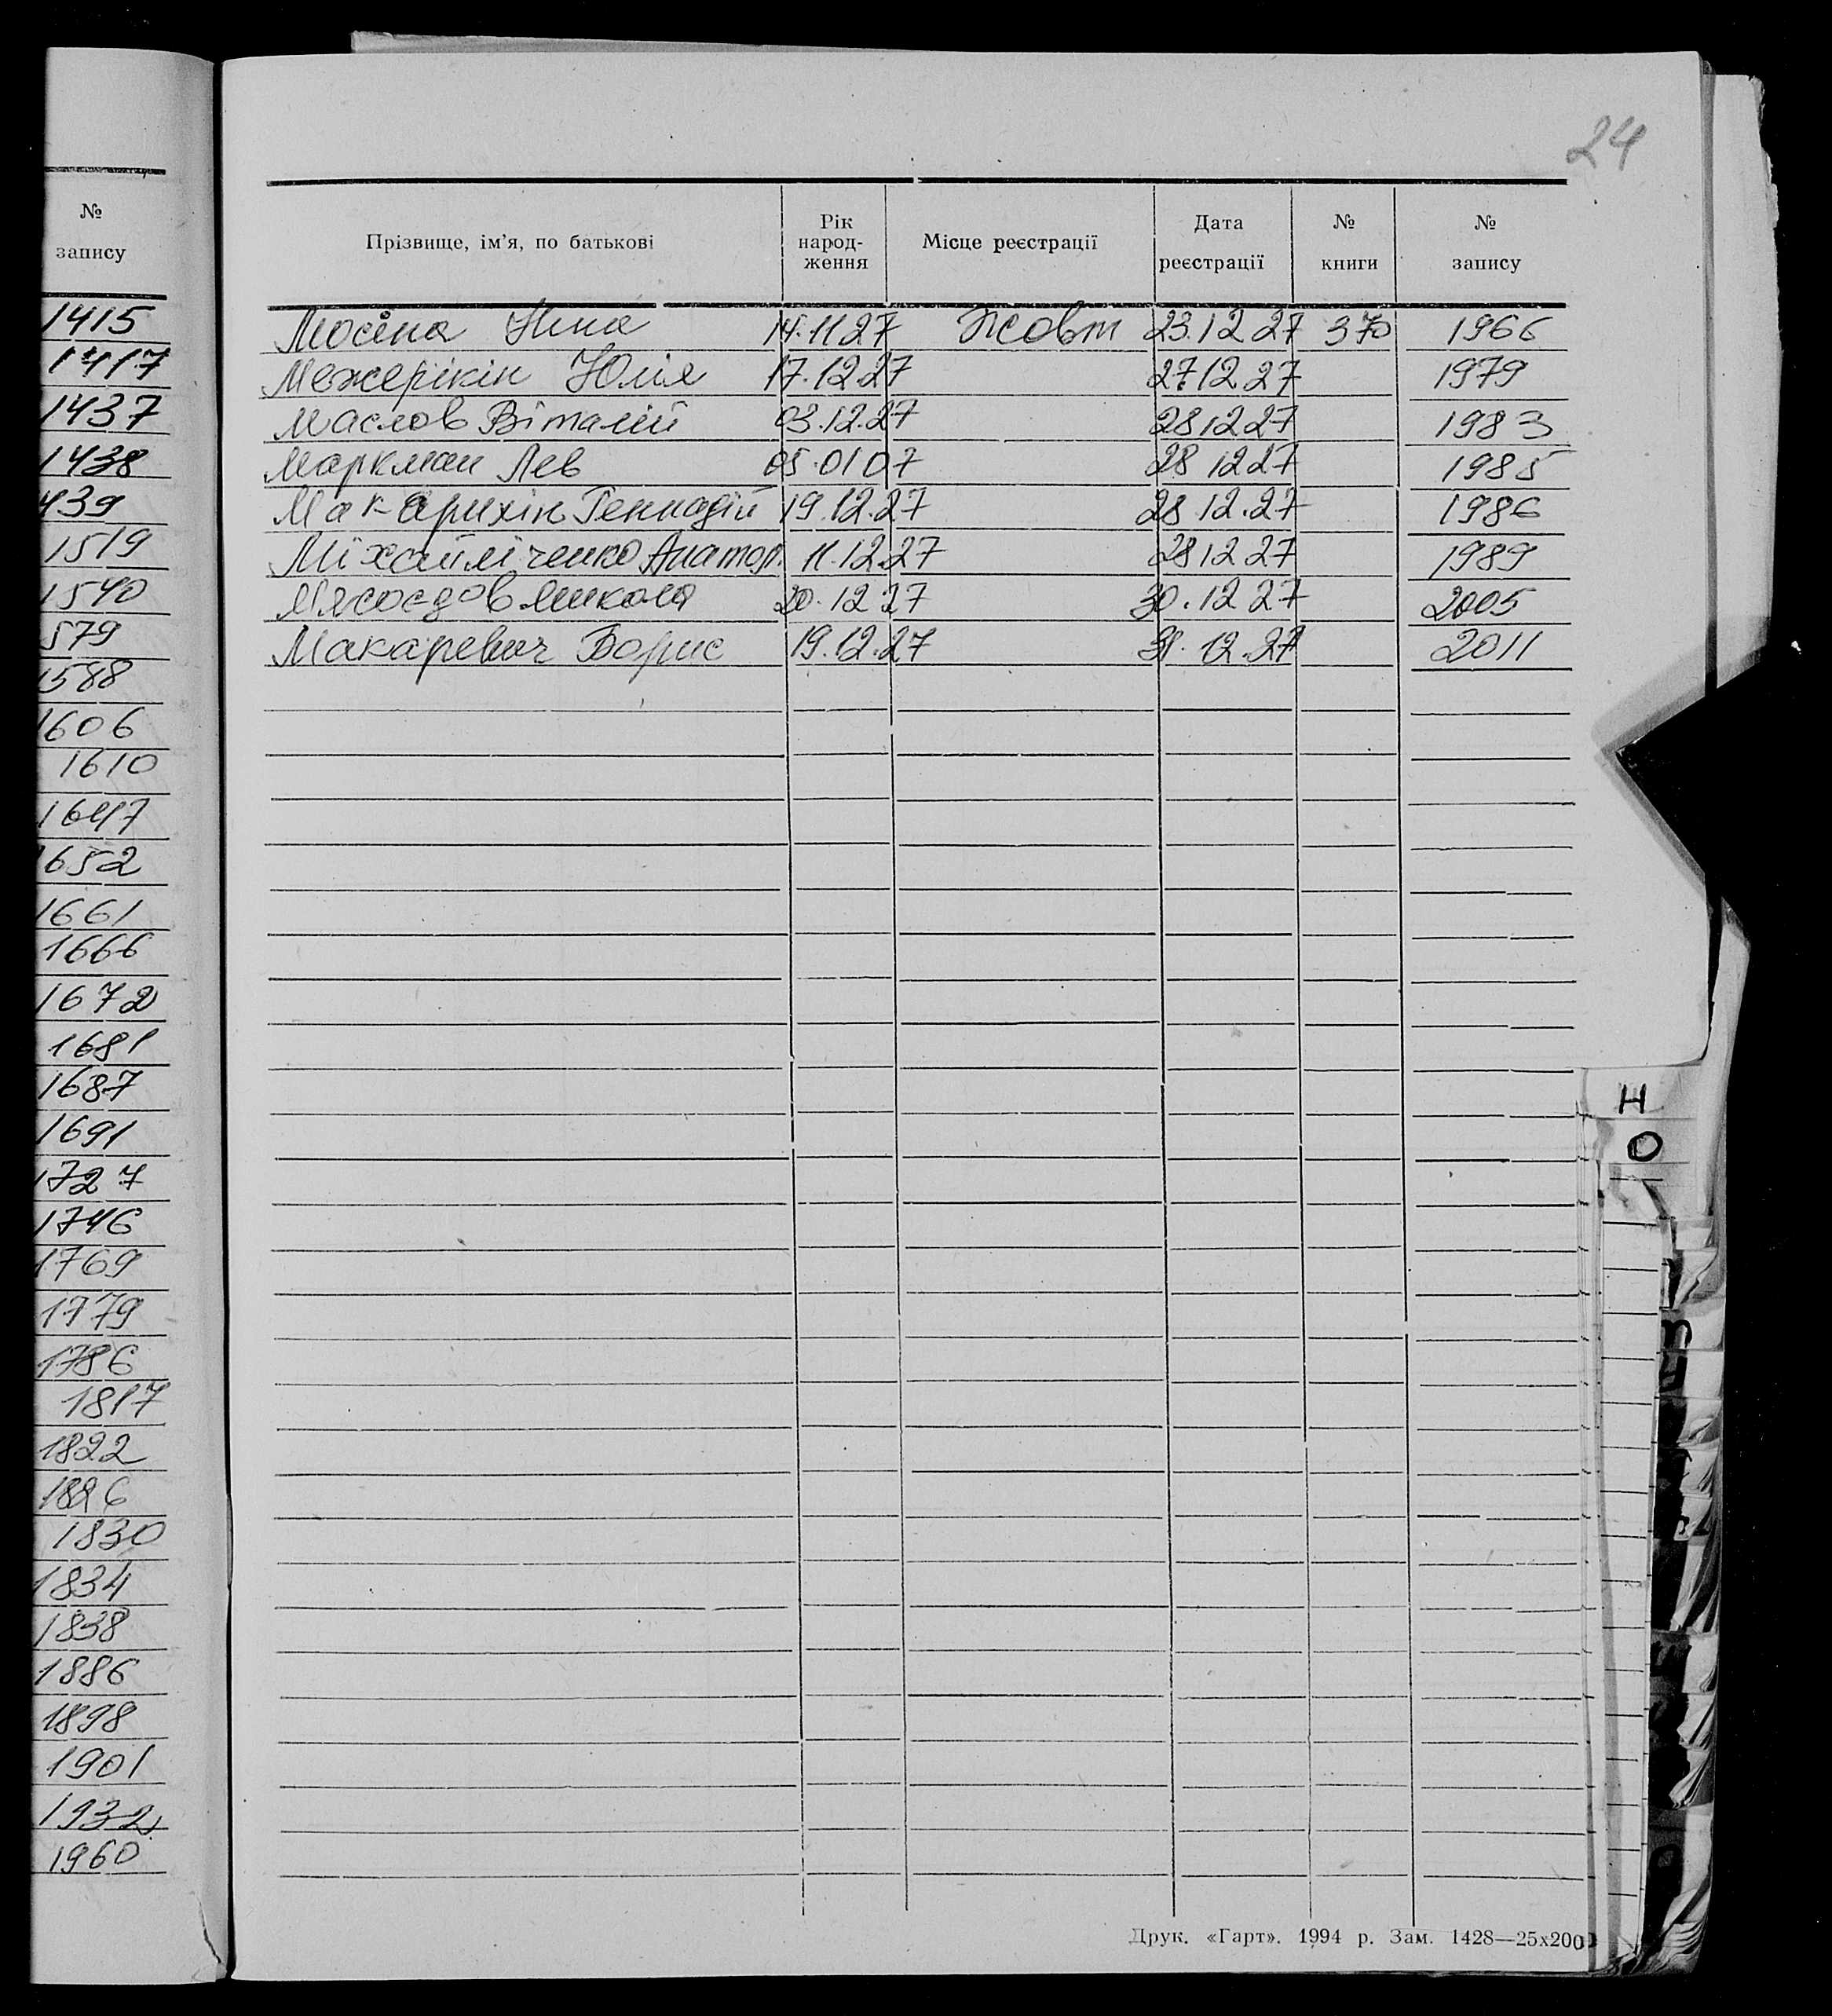 24
№ запису
1415
1417
1437
1438
439
1519
1540
579
1588
1606
1610
1647
1652
1661
1666
1672
1681
1687
1691
1727
1746
1769
1779
1786
1817
1822
1826
1830
1834
1838
1886
1898
1901
1932
1960
Прізвище, ім’я, по батькові Рік народ-ження Місце реєстрації Дата реєстрації № книги № запису
Мосіна Ніна 14.11 27 Жовт 23.12 27 370 1966
Межерікін Юлія 17.12.27 27 12 27 1979
Маслов Віталій 03.12.27 28 12 27 1983
Маркман Лев 05.01 07 28 12 27 1985
Макарихін Геннадій 19.12.27 28.12.27 1986
Міхайліченко Анатол. 11.12.27 28 12 27 1989
Мясоєдов Микола 20.12 27 30.12 27 2005
Макаревич Борис 19.12.27 31.12.27 2011
Н
О
Друк. «Гарт». 1994 р. Зам. 1428—25х200